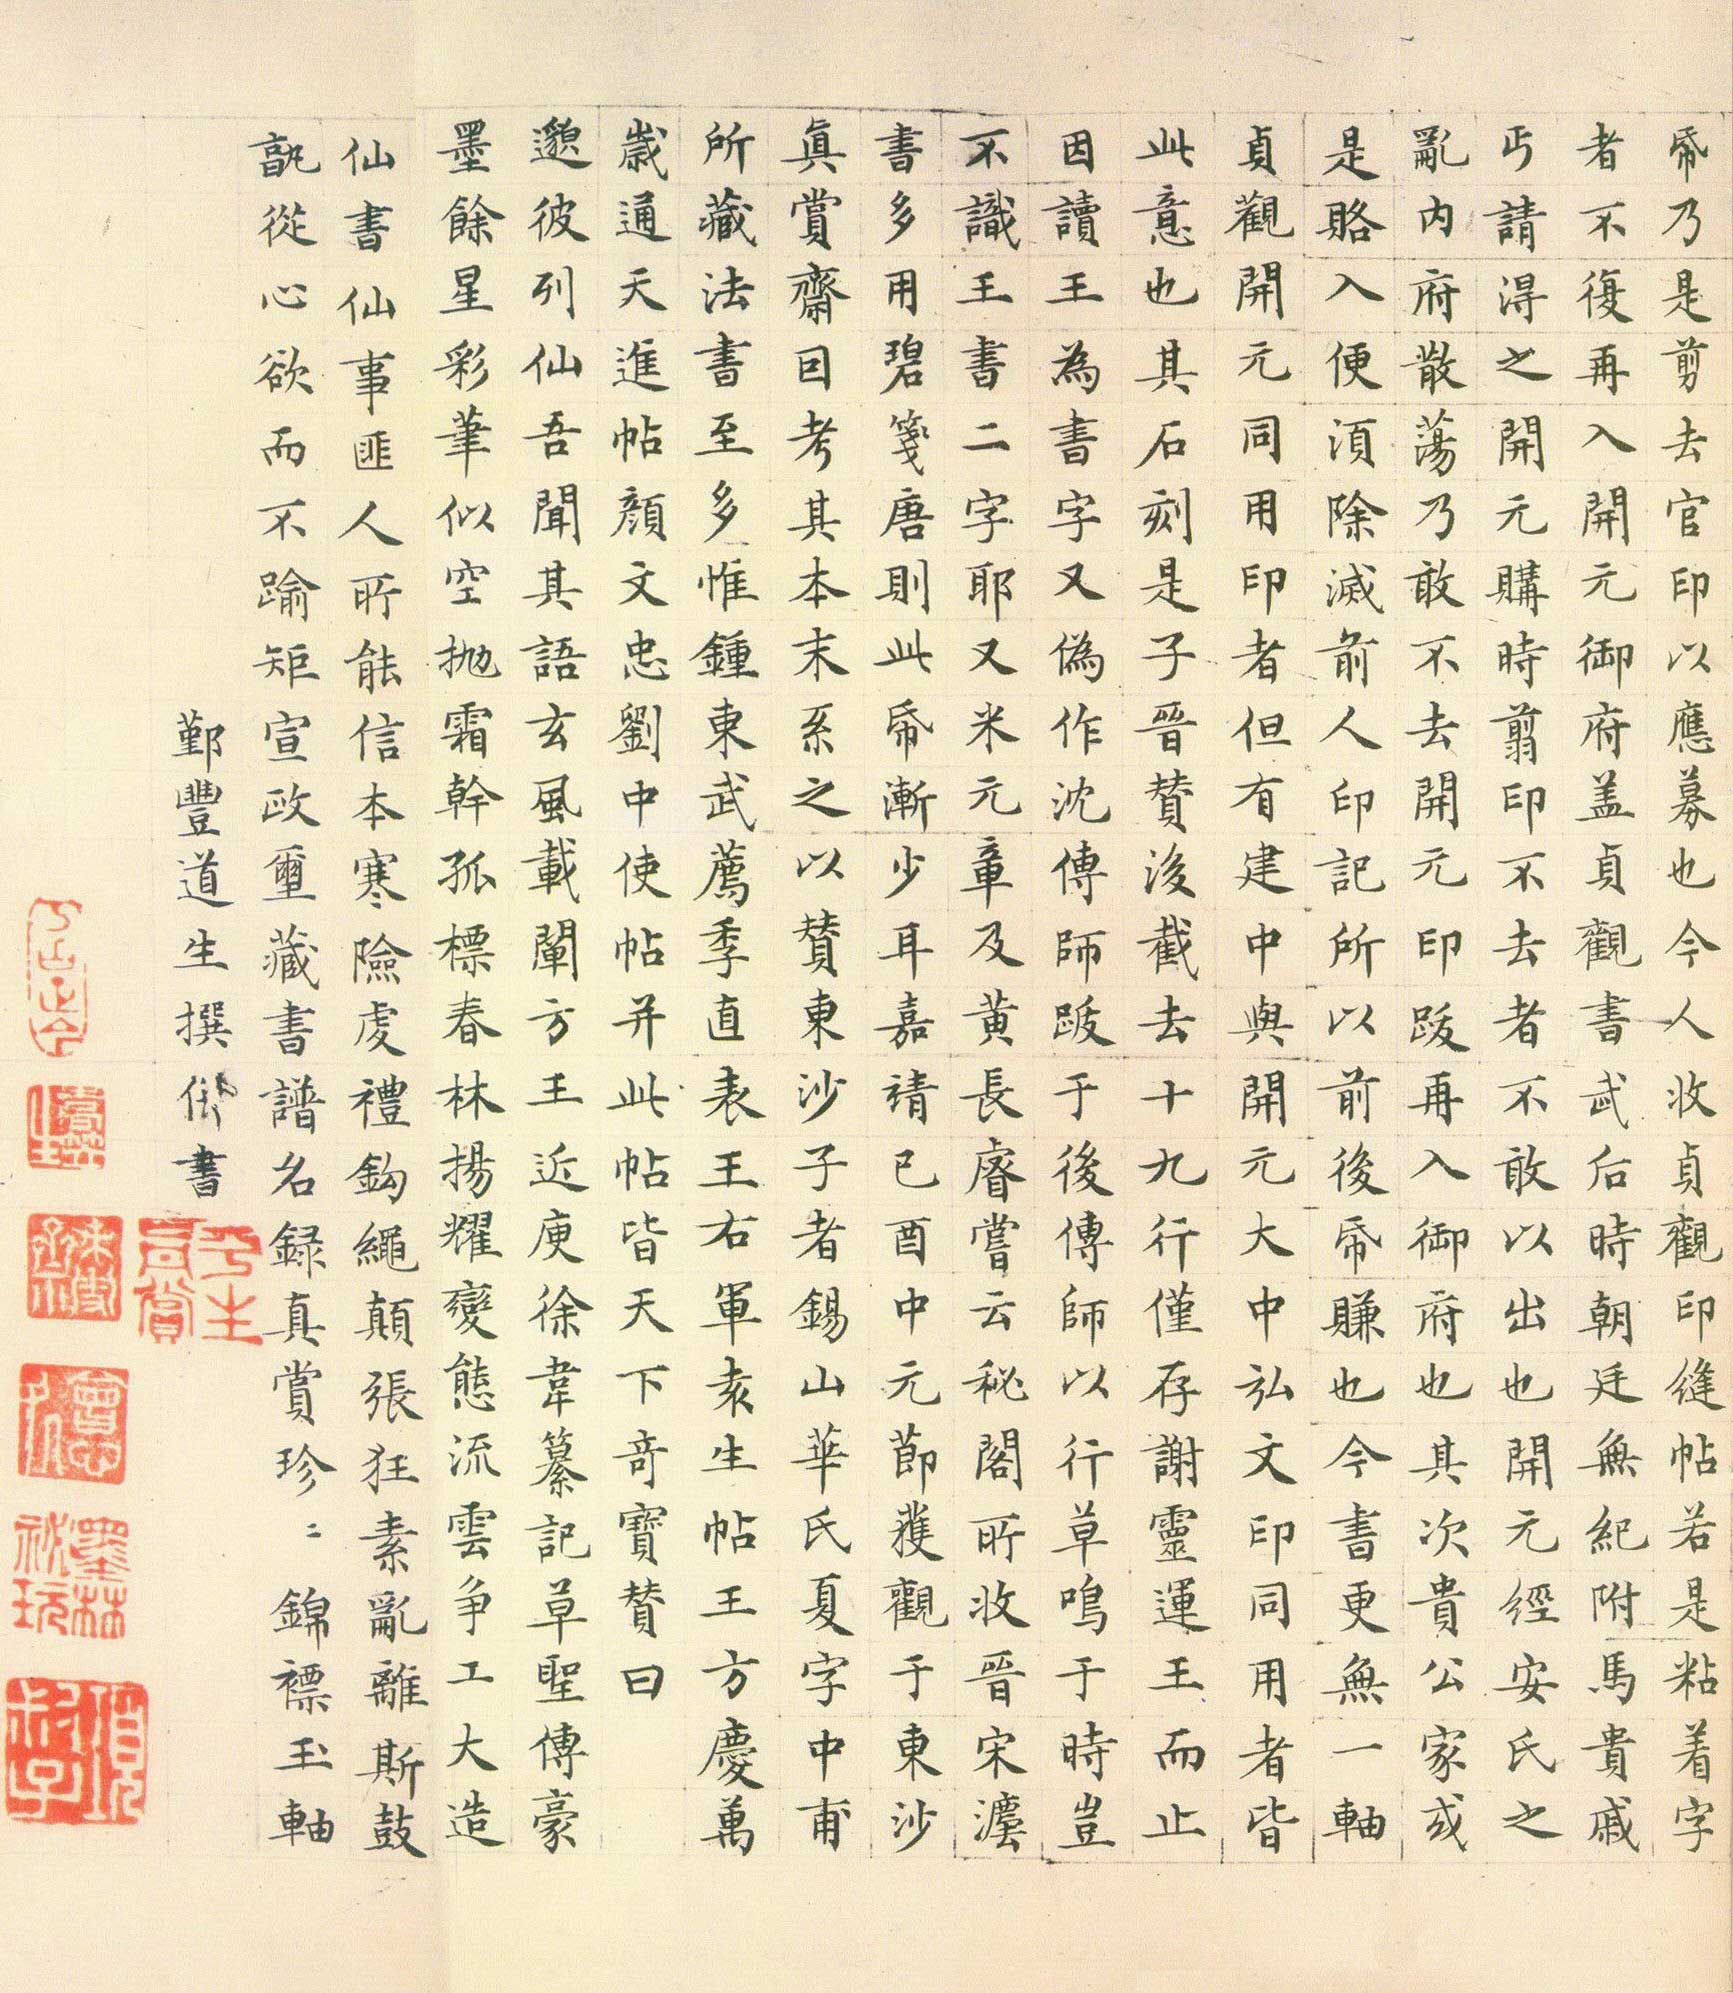 帋乃是剪去官印以應募也今人收貞觀印縫帖若是粘着字
者不復再入開元御府盖貞觀書武后時朝廷無紀附馬貴戚
丐請淂之開元購時剪印不去者不敢以出也開元經安氏之
亂内府散蕩乃敢不去開元印跋再入御府也其次貴公家或
是賂入便湏除滅前人印記所以前後帋賺也今書更無一軸
貞觀開元同用印者但有建中與開元大中弘文印同用者皆
此意也其石刻是子晉贊後截去十九行僅存謝靈運王而止
因讀王為書字又偽作沈傳師跋于後傳師以行草鳴于時豈
不識王書二字耶又米元章及黄長睿嘗云秘閣所收晉宋灋
書多用碧箋唐則此帋漸少耳嘉靖己酉中元節獲觀于東沙
真賞齋因考其本末系之以贊東沙子者錫山華氏夏字中甫
所藏法書至多惟鍾東武薦季直表王右軍袁生帖王方慶萬
歲通天進帖顔文忠劉中使帖并此帖皆天下奇寶贊曰
邈彼列仙吾聞其語玄風載闡方王近庾徐韋纂記草聖傳豪
墨餘星彩筆似空抛霜幹孤標春林揚耀變態流雲争工大造
仙書仙事匪人所能信本寒險虔禮鈎繩顛張狂素亂離斯鼓
孰從心欲而不踰矩宣政璽藏書譜名録真賞珍〻錦褾玉軸
鄞豐道生撰并書
平生
真賞